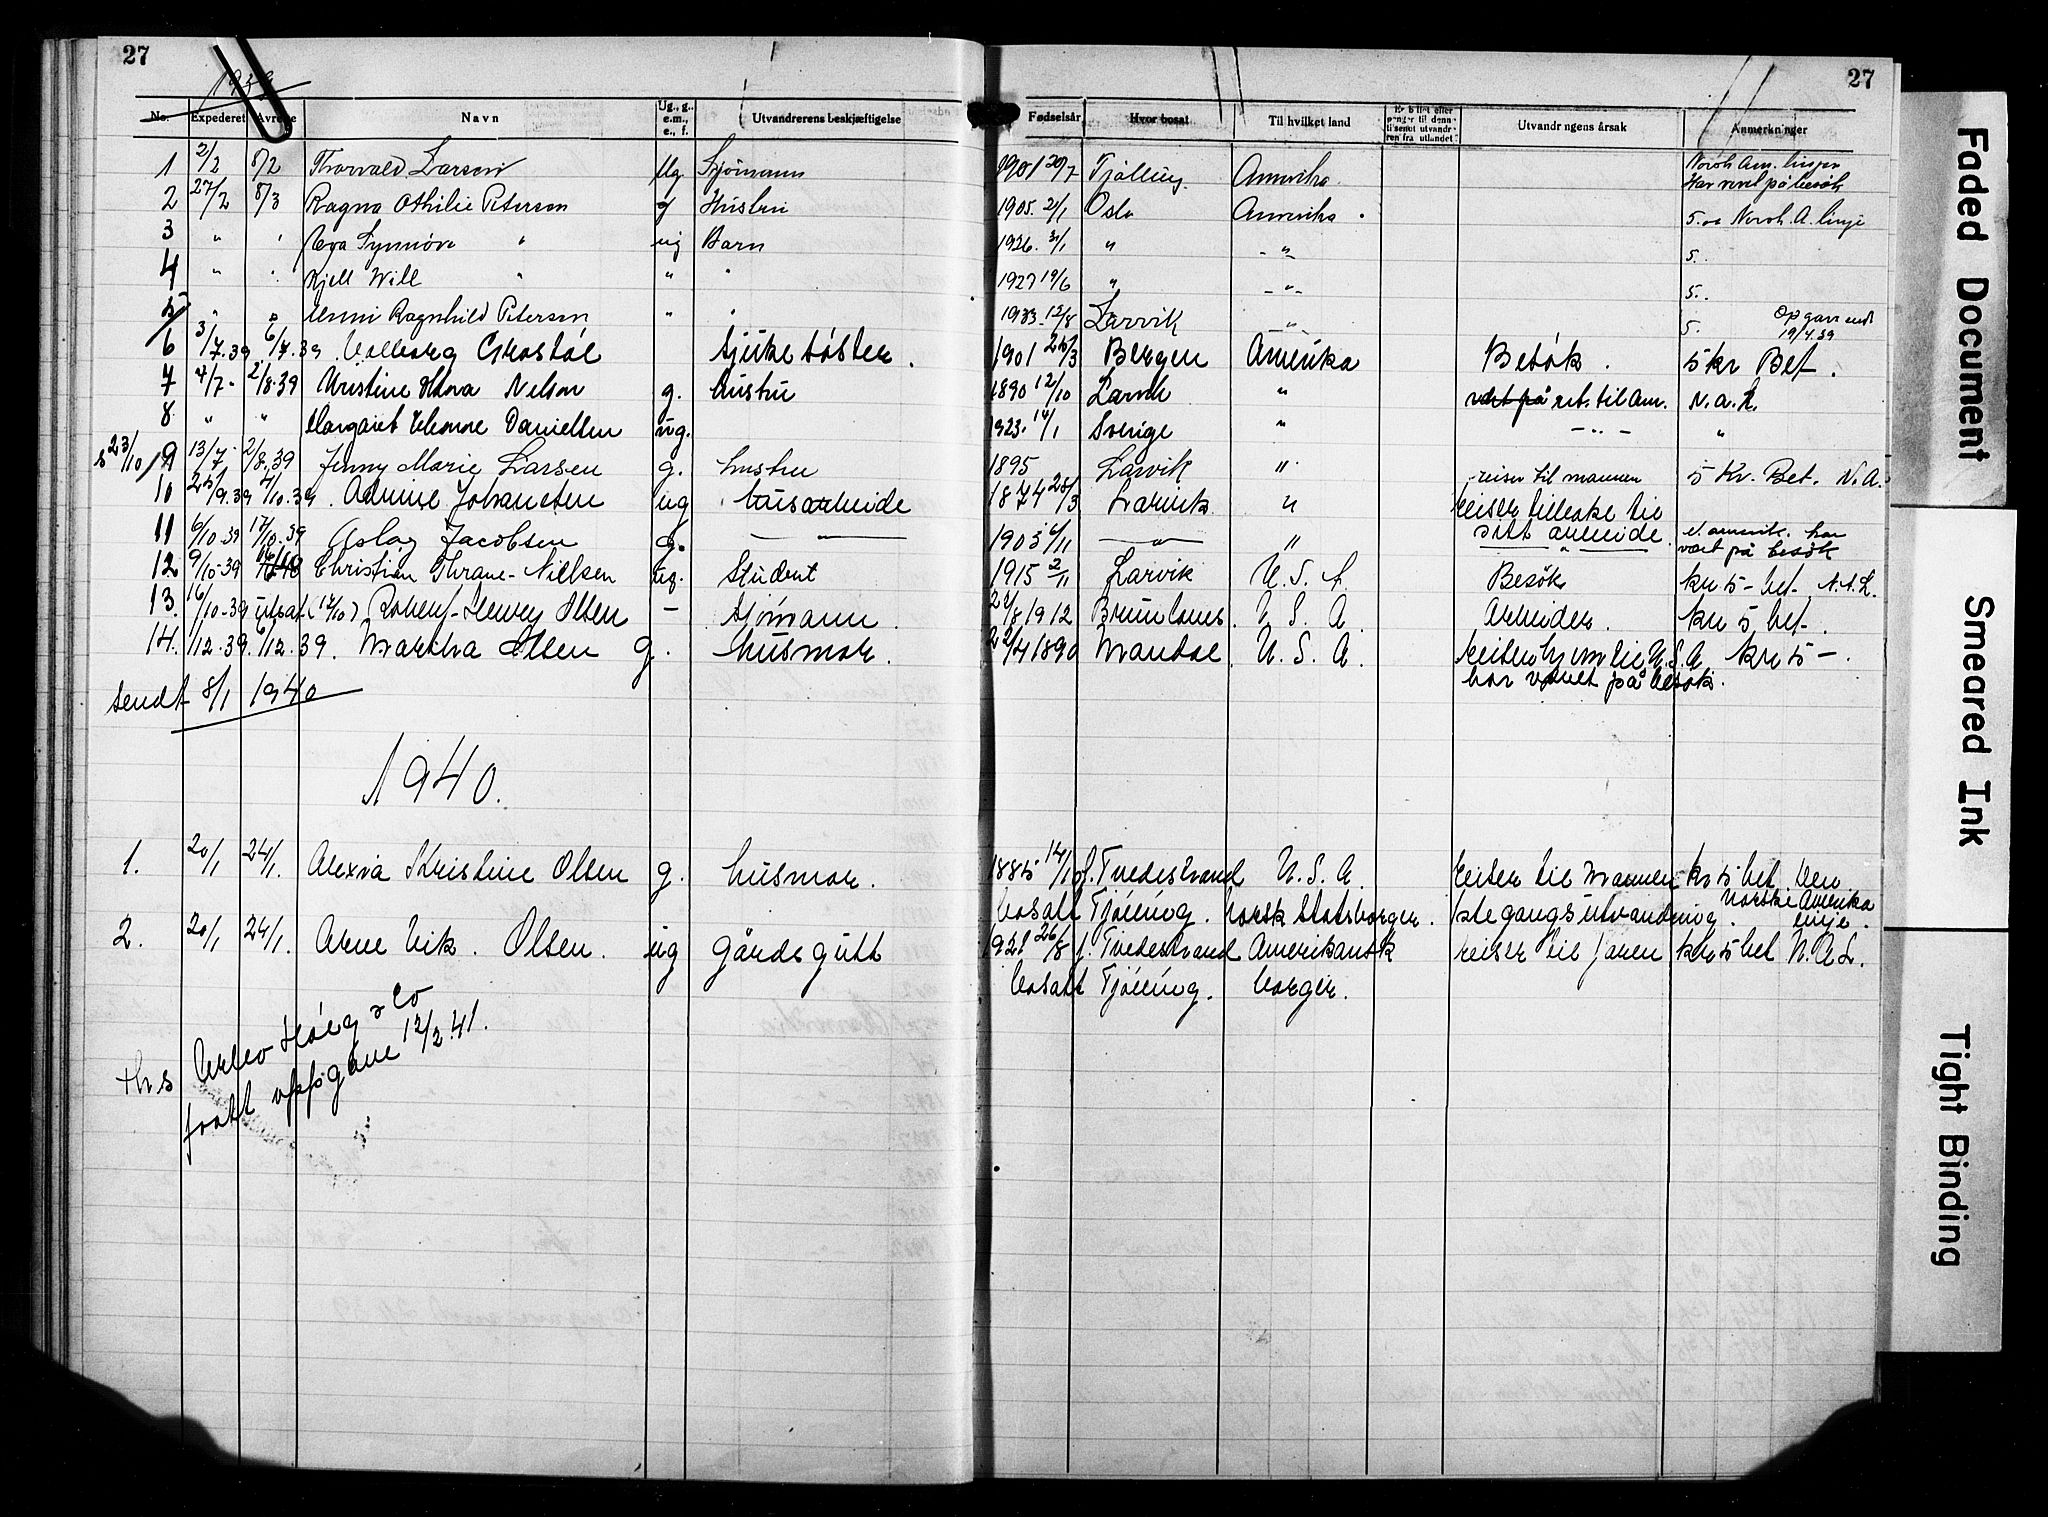 27
27
1939
No. Expederet Avreise Navn Ug., g., e.m., e., f. Utvandrerens beskjæftigelse Fødselsår Hvor bosat Til hvilket land Utvandringens årsak Anmerkninger
Norsk Am. linjen
1 2/2 8/2 Thorvald Larsen Ug Sjømann 1901 20/7 Tjølling Amerika Har veret på besøk
2 27/2 8/3 Ragna Othilie Peterson g Hustru 1905. 21/1 Oslo Amerika . 5.00 Norsk. A. linje
3 " " Eva Synnøve " ug Barn 1926. 31/1 " - " - 5.
4 " " Kjell Will " " " 1927 19/6 " - " - 5.
5 " " Unni Ragnhild Peterson " " 1933. 12/8 Larvik " 5. Opgave sendt 19/4.39
6 3/7.39 6/7.39 Valborg Grostøl sjukesøster . 1901 25/3 Bergen Amerika Besøk . 5 kr Bet .
7 4/7- 2/8.39 Kristine Nelson g. hustru 1890 12/10 Larvik " vært på ret. til Am. N. a. L.
8. " " Margaret Eleonore Danielsen ug. 1923. 14/1 Sverige " - " - "
s 23/10 9 13/7- 2/8.39 Jenny Marie Larsen g. hustru 1895 Larvik " reiser til mannen 5 Kr. Bet. N.A.
10 25/9.39 4/10.39 . Johansen ug husarbeide 1874 28/3 Larvik " reiser tilbake til
11 6/10.39 17/10.39 Aslag Jacobsen g. — " — 1903 6/11 — " — " sitt arbeide . N. amerik. har vært på besøk
12 9/10-39 Christian Thrane-Nielsen ug. Student 1915 2/11 Larvik U. S. A. Besøk kr 5- bet- N.A.L.
13. 16/10.39 utsat (17/10) Robert-Henry Olsen - Sjømann . 21/8 1912 Brunlanes. U. S. A. Arbeider . kr 5 bet- .
14. 1/12.39. 6/12.39. Martha Olsen g . husmor . 22/4 1890 Mandal . U. S. A. reiser hjem til U.S.A kr 5 - .
har været på besøk .
sendt 8/1 1940
1940.
1. 20/1 24/1. Alexia Kristine Olsen g. husmor . 1885 14/1 f. Tvedestrand U. S. A. reiser til mannen kr 5 bet Den
bosatt Tjølling . norsk statsborger . 1ste gangs utvandring . Norske Amerika linje .
2. 20/1 24/1. Arne Vik . Olsen . ug gårdsgutt 1921 26/8 f. Tvedestrand Amerikansk reiser til faren kr 5 bet N. A L.
bosatt Tjølling . borger .
ths Høeg & Co
fratt oppgave 12/2.41.
Faded Document
Smeared Ink
Tight Binding